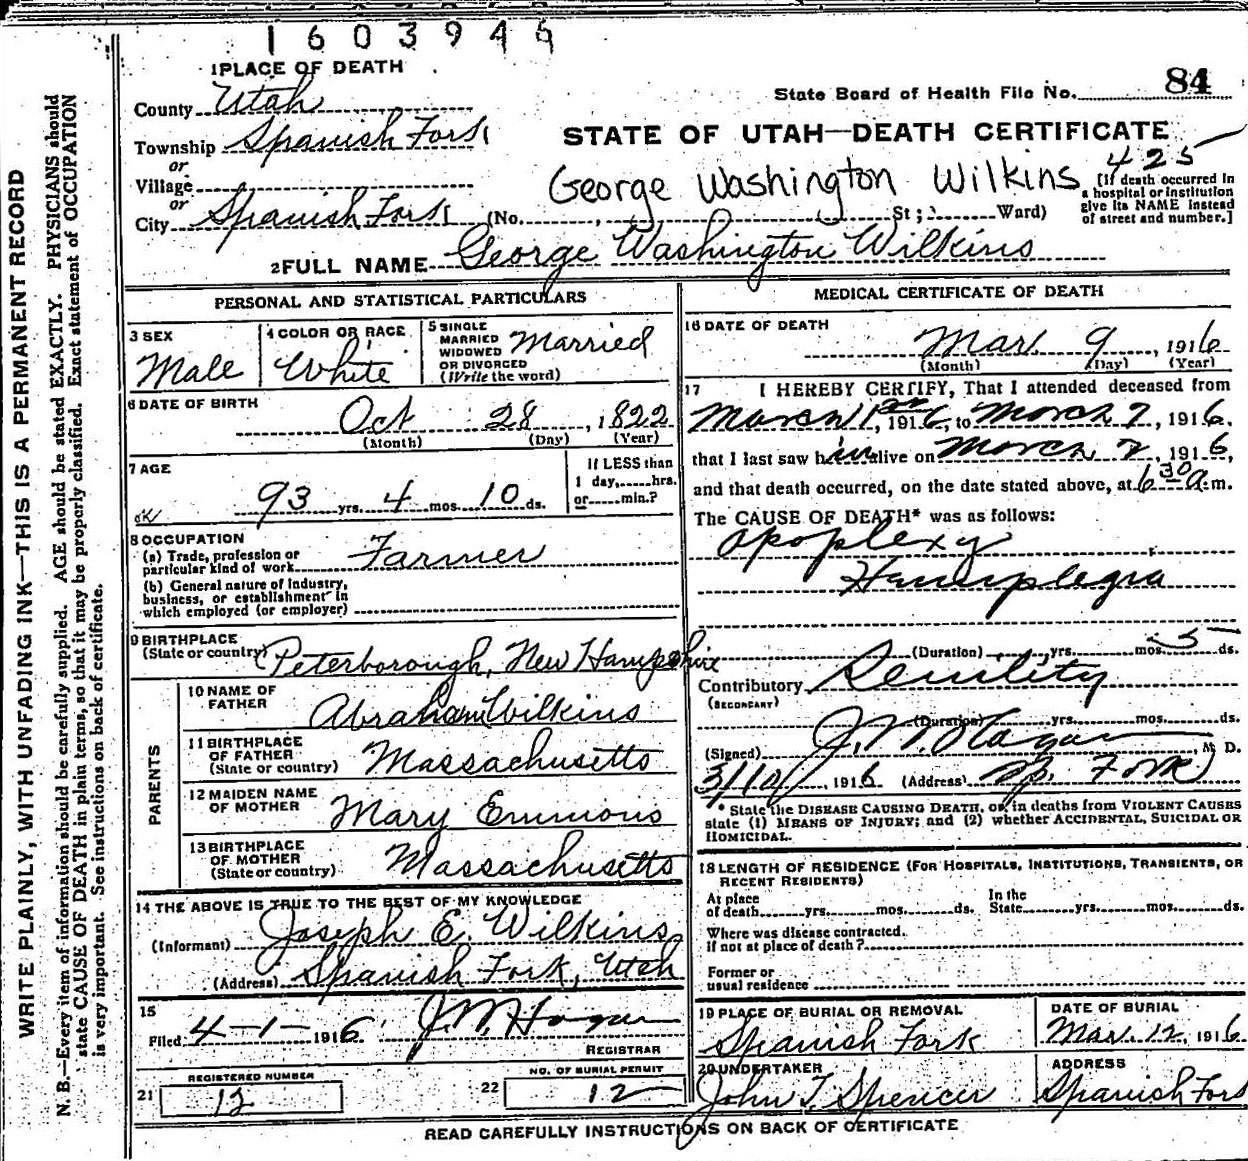 1603945
1 PLACE OF DEATH
County Utah
State Board of Health File No. 84
Township Spanish Fork
STATE OF UTAH—DEATH CERTIFICATE
or
Village
425
George Washington Wilkins
[If death occurred in
a hospital or institution
give its NAME instead
of street and number.]
or
City Spanish Fork (No. , St; Ward)
2 FULL NAME George Washington Wilkins
PERSONAL AND STATISTICAL PARTICULARS
3 SEX
Male
4 COLOR OR RACE
White
5 SINGLE
MARRIED
WIDOWED
OR DIVORCED
(Write the word)
Married
6 DATE OF BIRTH
Oct 28, 1822
(Month) (Day) (Year)
7 AGE
93 yrs. 4 mos. 10 ds.
If LESS than
1 day, hrs.
or min.?
OK
8 OCCUPATION
(a) Trade, profession or
particular kind of work Farmer
(b) General nature of industry,
business, or establishment in
which employed (or employer)
9 BIRTHPLACE
(State or country) Peterborough, New Hampshire
PARENTS
10 NAME OF
FATHER Abraham Wilkins
11 BIRTHPLACE
OF FATHER
(State or country) Massachusetts
12 MAIDEN NAME
OF MOTHER Mary Emmons
13 BIRTHPLACE
OF MOTHER
(State or country) Massachusetts
14 THE ABOVE IS TRUE TO THE BEST OF MY KNOWLEDGE
(Informant) Joseph E. Wilkins
(Address) Spanish Fork, Utah
15
Filed 4-1- 1916 J. M. Hagan
REGISTRAR
21 REGISTERED NUMBER
12
22 NO. OF BURIAL PERMIT
12
MEDICAL CERTIFICATE OF DEATH
16 DATE OF DEATH
Mar. 9, 1916
(Month) (Day) (Year)
17 I HEREBY CERTIFY, That I attended deceased from
March 1, 1916, to March 7, 1916.
that I last saw him alive on March 7, 1916,
and that death occurred, on the date stated above, at 6 30 a.m.
The CAUSE OF DEATH* was as follows:
Apoplexy
Hemiplegia
(Duration) yrs. mos. 5 ds.
Contributory Senility
(SECONDARY)
(Duration) yrs. mos. ds.
(Signed) J. M. Hagan, M. D.
3/10/, 1916 (Address) Sp. Fork
* State the DISEASE CAUSING DEATH, or, in deaths from VIOLENT CAUSES
state (1) MEANS OF INJURY; and (2) whether ACCIDENTAL, SUICIDAL OR
HOMICIDAL.
18 LENGTH OF RESIDENCE (FOR HOSPITALS, INSTITUTIONS, TRANSIENTS, OR
RECENT RESIDENTS)
At place
of death yrs. mos. ds.
In the
State yrs. mos. ds.
Where was disease contracted.
if not at place of death?
Former or
usual residence
19 PLACE OF BURIAL OR REMOVAL
Spanish Fork
DATE OF BURIAL
Mar. 12, 1916
20 UNDERTAKER
John T. Spencer
ADDRESS
Spanish Fork
READ CAREFULLY INSTRUCTIONS ON BACK OF CERTIFICATE
WRITE PLAINLY, WITH UNFADING INK—THIS IS A PERMANENT RECORD
N. B.—Every item of information should be carefully supplied. AGE should be stated EXACTLY. PHYSICIANS should
state CAUSE OF DEATH in plain terms, so that it may be properly classified. Exact statement of OCCUPATION
is very important. See instructions on back of certificate.